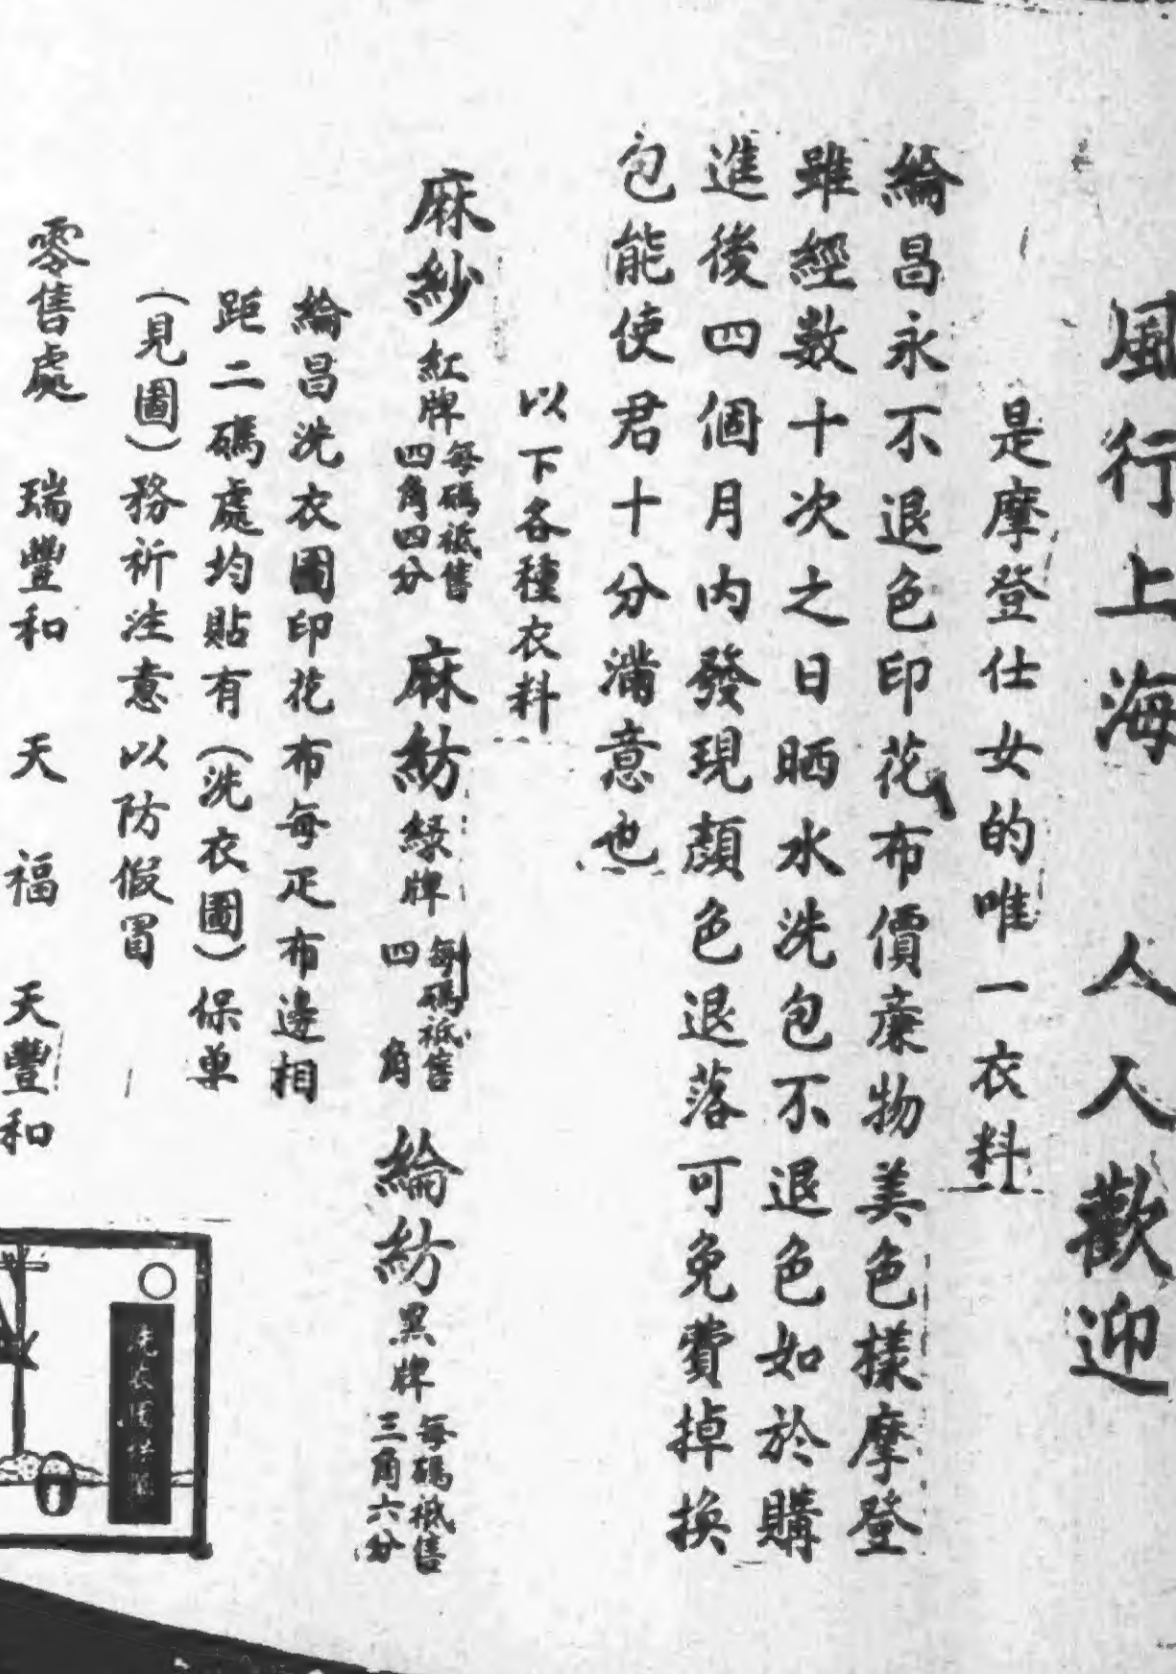 風行上海 人人歡迎
是摩登仕女的唯一衣料
綸昌永不退色印花布價廉物美色樣摩登
雖經数十次之日晒水洗包不退色如於購
進後四個月內發現顏色退落可免費掉換
包能使君十分滿意也
以下各種衣料
麻紗 紅牌 每碼祗售四角四分 麻紡 綠牌 每碼祗售四角 綸紡 黑牌 每碼祗售三角六分
綸昌洗衣圖印花布每疋布邊相
距二碼處均貼有(洗衣圖)保单
(見圖)務祈注意以防假冒
零售處 瑞豐和 天福 天豐和
洗衣圖